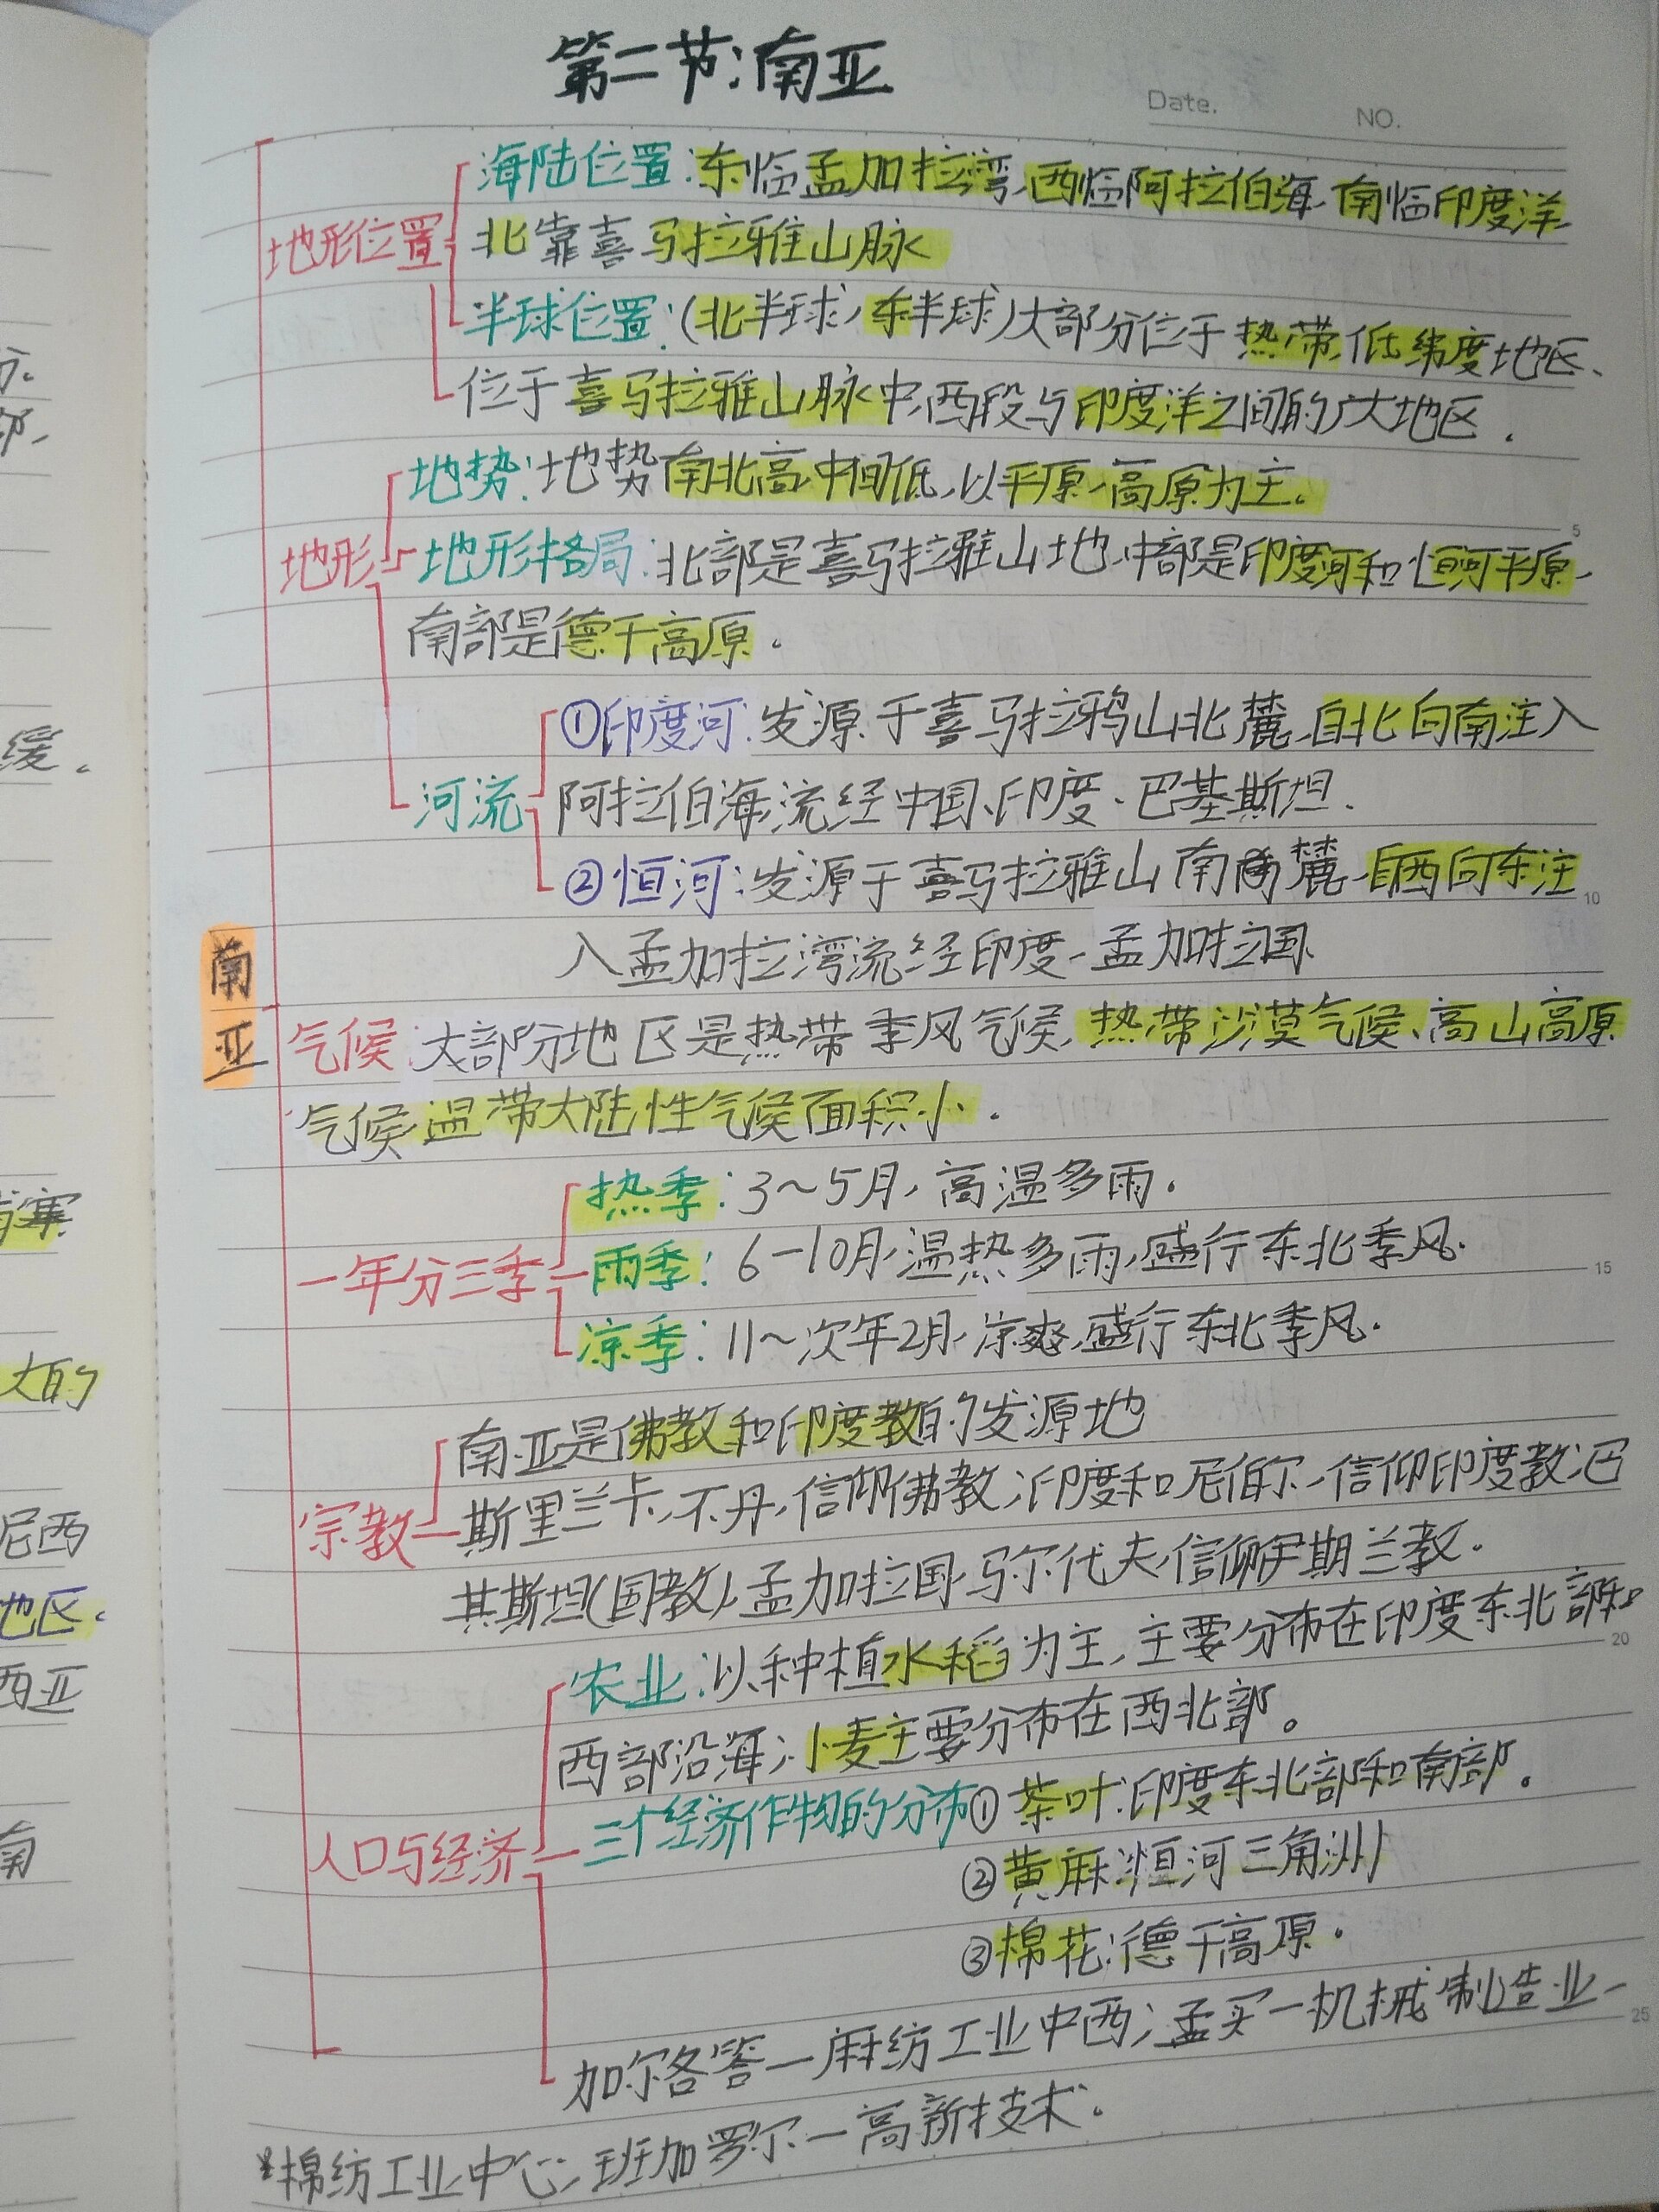 第二节:南亚
Date.
NO.
海陆位置:东临孟加拉湾,西临阿拉伯海,南临印度洋
地形位置
北靠喜马拉雅山脉
半球位置:(北半球,东半球)大部分位于热带,低纬度地区、
位于喜马拉雅山脉中,西段与印度洋之间的广大地区.
地势:地势南北高,中间低,以平原、高原为主。
5
地形
地形格局:北部是喜马拉雅山地,中部是印度河和恒河平原、
南部是德干高原.
①印度河:发源于喜马拉鸦山北麓,自北向南注入
河流
阿拉伯海,流经中国、印度、巴基斯坦.
②恒河:发源于喜马拉雅山南麓,自西向东注
10
入孟加拉湾流经印度、孟加拉国
南亚
气候:大部分地区是热带季风气候,热带沙漠气候、高山高原
气候,温带大陆性气候面积小.
热季:3~5月,高温多雨.
一年分三季
雨季:6-10月,温热多雨,盛行东北季风.
15
凉季:11~次年2月,凉爽,盛行东北季风.
南亚是佛教和印度教的发源地
宗教
斯里兰卡,不丹,信仰佛教;印度和尼伯尔、信仰印度教;巴
其斯坦(国教),孟加拉国,马尔代夫,信仰伊期兰教.
农业:以种植水稻为主,主要分布在印度东北部和
20
西部沿海;小麦主要分布在西北部。
三个经济作物的分布①茶叶:印度东北部和南部。
人口与经济
②黄麻:恒河三角洲
③棉花:德干高原.
加尔各答—麻纺工业中西;孟买—机械制造业、
25
*棉纺工业中心;班加罗尔—高新技术.
缓.
大的
尼西
地区.
西亚
南